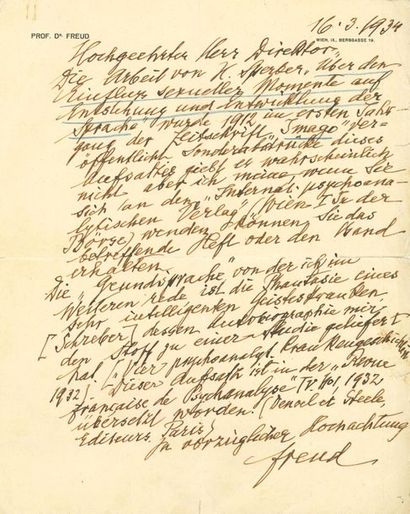 11
16.3.1934
PROF. Dr FREUD
WIEN, IX., BERGGASSE 19.
Hochgeehrter Herr Direktor,
Die Arbeit von H. Sperber, „Über den
Einfluss sexueller Momente auf
Entstehung und Entwicklung der
Sprache" wurde 1912 im ersten Jahr-
gang der Zeitschrift „Imago" ver-
öffentlicht. Sonderabdrücke dieses
Aufsatzes giebt es wahrscheinlich
nicht, aber ich meine, wenn Sie
sich an den „Internat. psychoana-
lytischen Verlag" (Wien I In der
Börse) wenden, können Sie das
betreffende Heft oder den Band
erhalten.
Die „Grundsprache" von der ich im
Weiteren rede ist die Phantasie eines
sehr intelligenten Geisteskranken
[Schreber] dessen Autobiographie mir
den Stoff zu einer Studie geliefert
hat. [Vier psychoanalyt. Krankengeschichten
1932]. Dieser Aufsatz ist in der „Revue
française de Psychanalyse" T. V. No 1, 1932
übersetzt worden. (Denoel et Steele,
Editeurs, Paris)
In vorzüglicher Hochachtung
Freud